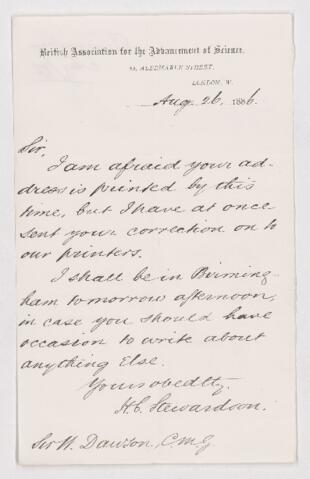 British Association for the Advancement of Science.
22, ALBEMARLE STREET,
LONDON, W.
Aug. 26. 1886.
Sir,
I am afraid your ad-
dress is printed by this
time, but I have at once
sent your correction on to
our printers.
I shall be in Birming-
ham tomorrow afternoon,
in case you should have
occasion to write about
anything else.
Yours obedtly,
H.C. Stewardson.
Sir W. Dawson, C.M.G.